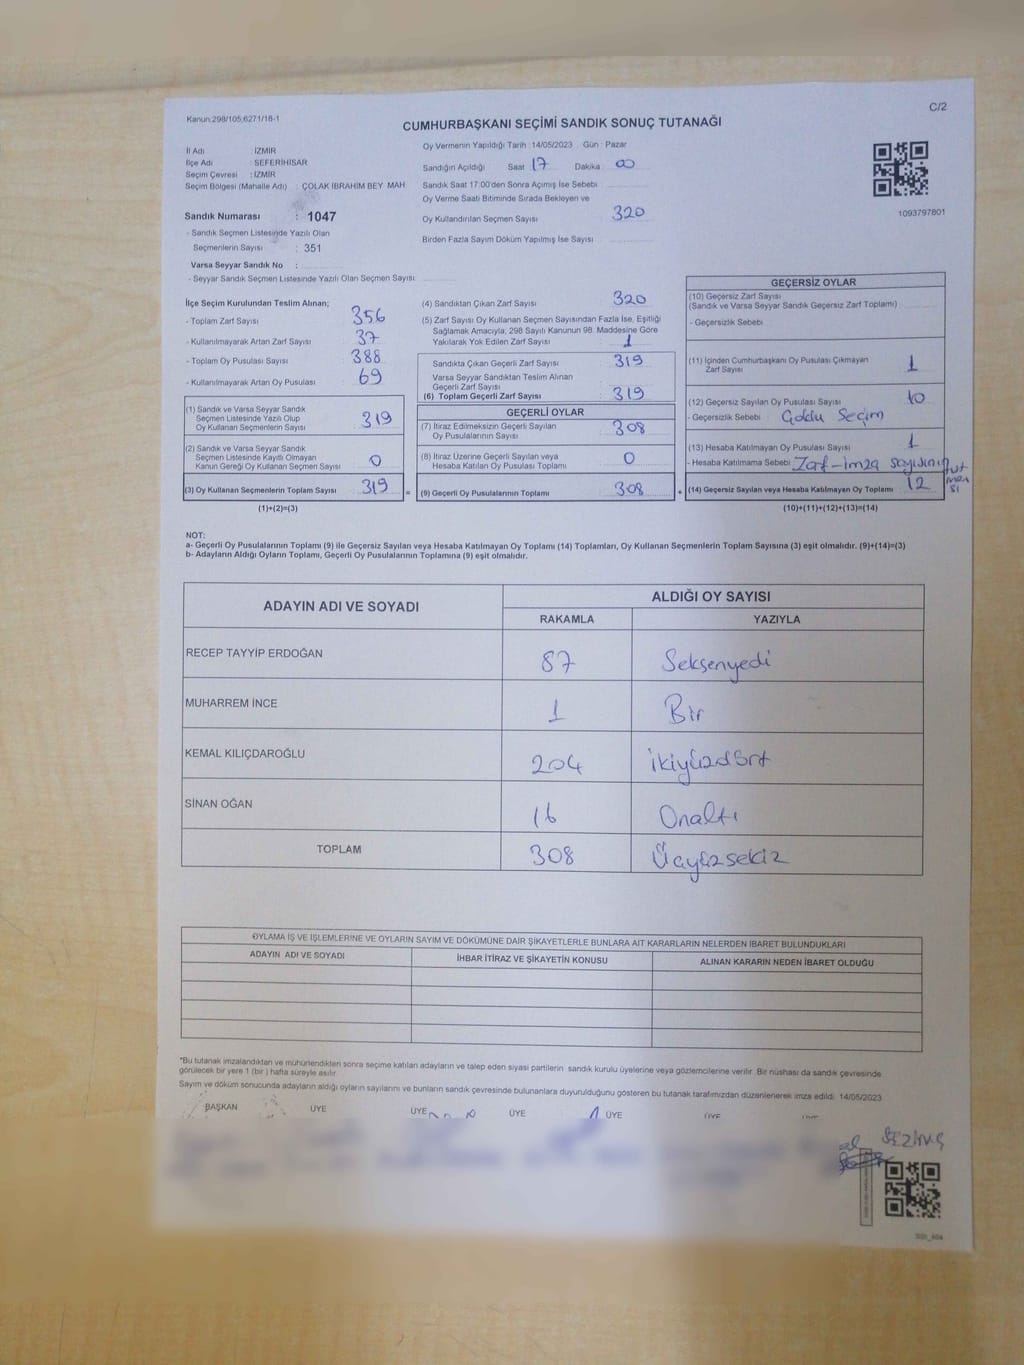 Kanun:298/105;6271/18-1
C/2
CUMHURBAŞKANI SEÇİMİ SANDIK SONUÇ TUTANAĞI
İl Adı : İZMİR
İlçe Adı : SEFERİHİSAR
Seçim Çevresi : İZMİR
Seçim Bölgesi (Mahalle Adı) : ÇOLAK İBRAHİM BEY MAH
Sandık Numarası : 1047
- Sandık Seçmen Listesinde Yazılı Olan
Seçmenlerin Sayısı : 351
Varsa Seyyar Sandık No :
- Seyyar Sandık Seçmen Listesinde Yazılı Olan Seçmen Sayısı:
Oy Vermenin Yapıldığı Tarih : 14/05/2023 Gün : Pazar
Sandığın Açıldığı Saat 17 Dakika 00
Sandık Saat 17:00'den Sonra Açılmış İse Sebebi
Oy Verme Saati Bitiminde Sırada Bekleyen ve
Oy Kullandırılan Seçmen Sayısı 320
Birden Fazla Sayım Döküm Yapılmış İse Sayısı
1093797801
İlçe Seçim Kurulundan Teslim Alınan;
- Toplam Zarf Sayısı 356
- Kullanılmayarak Artan Zarf Sayısı 37
- Toplam Oy Pusulası Sayısı 388
- Kullanılmayarak Artan Oy Pusulası 69
(1) Sandık ve Varsa Seyyar Sandık
Seçmen Listesinde Yazılı Olup
Oy Kullanan Seçmenlerin Sayısı 319
(2) Sandık ve Varsa Seyyar Sandık
Seçmen Listesinde Kayıtlı Olmayan
Kanun Gereği Oy Kullanan Seçmen Sayısı 0
(3) Oy Kullanan Seçmenlerin Toplam Sayısı 319
(1)+(2)=(3)
(4) Sandıktan Çıkan Zarf Sayısı 320
(5) Zarf Sayısı Oy Kullanan Seçmen Sayısından Fazla İse, Eşitliği
Sağlamak Amacıyla, 298 Sayılı Kanunun 98. Maddesine Göre
Yakılarak Yok Edilen Zarf Sayısı 1
Sandıkta Çıkan Geçerli Zarf Sayısı 319
Varsa Seyyar Sandıktan Teslim Alınan
Geçerli Zarf Sayısı
(6) Toplam Geçerli Zarf Sayısı 319
GEÇERLİ OYLAR
(7) İtiraz Edilmeksizin Geçerli Sayılan
Oy Pusulalarının Sayısı 308
(8) İtiraz Üzerine Geçerli Sayılan veya
Hesaba Katılan Oy Pusulası Toplamı 0
= (9) Geçerli Oy Pusulalarının Toplamı 308 +
GEÇERSİZ OYLAR
(10) Geçersiz Zarf Sayısı
(Sandık ve Varsa Seyyar Sandık Geçersiz Zarf Toplamı)
- Geçersizlik Sebebi
(11) İçinden Cumhurbaşkanı Oy Pusulası Çıkmayan
Zarf Sayısı 1
(12) Geçersiz Sayılan Oy Pusulası Sayısı 10
- Geçersizlik Sebebi : Çoklu Seçim
(13) Hesaba Katılmayan Oy Pusulası Sayısı 1
- Hesaba Katılmama Sebebi : Zarf-imza sayısının tutmaması
(14) Geçersiz Sayılan veya Hesaba Katılmayan Oy Toplamı 12
(10)+(11)+(12)+(13)=(14)
NOT:
a- Geçerli Oy Pusulalarının Toplamı (9) ile Geçersiz Sayılan veya Hesaba Katılmayan Oy Toplamı (14) Toplamları, Oy Kullanan Seçmenlerin Toplam Sayısına (3) eşit olmalıdır. (9)+(14)=(3)
b- Adayların Aldığı Oyların Toplamı, Geçerli Oy Pusulalarının Toplamına (9) eşit olmalıdır.
ADAYIN ADI VE SOYADI
ALDIĞI OY SAYISI
RAKAMLA YAZIYLA
RECEP TAYYİP ERDOĞAN 87 Seksenyedi
MUHARREM İNCE 1 Bir
KEMAL KILIÇDAROĞLU 204 ikiyüzdört
SİNAN OĞAN 16 Onaltı
TOPLAM 308 Üçyüzsekiz
OYLAMA İŞ VE İŞLEMLERİNE VE OYLARIN SAYIM VE DÖKÜMÜNE DAİR ŞİKAYETLERLE BUNLARA AİT KARARLARIN NELERDEN İBARET BULUNDUKLARI
ADAYIN ADI VE SOYADI İHBAR İTİRAZ VE ŞİKAYETİN KONUSU ALINAN KARARIN NEDEN İBARET OLDUĞU
*Bu tutanak imzalandıktan ve mühürlendikten sonra seçime katılan adayların ve talep eden siyasi partilerin sandık kurulu üyelerine veya gözlemcilerine verilir. Bir nüshası da sandık çevresinde
görülecek bir yere 1 (bir) hafta süreyle asılır.
Sayım ve döküm sonucunda adayların aldığı oyların sayılarını ve bunların sandık çevresinde bulunanlara duyurulduğunu gösteren bu tutanak tarafımızdan düzenlenerek imza edildi. 14/05/2023
BAŞKAN ÜYE ÜYE ÜYE ÜYE ÜYE